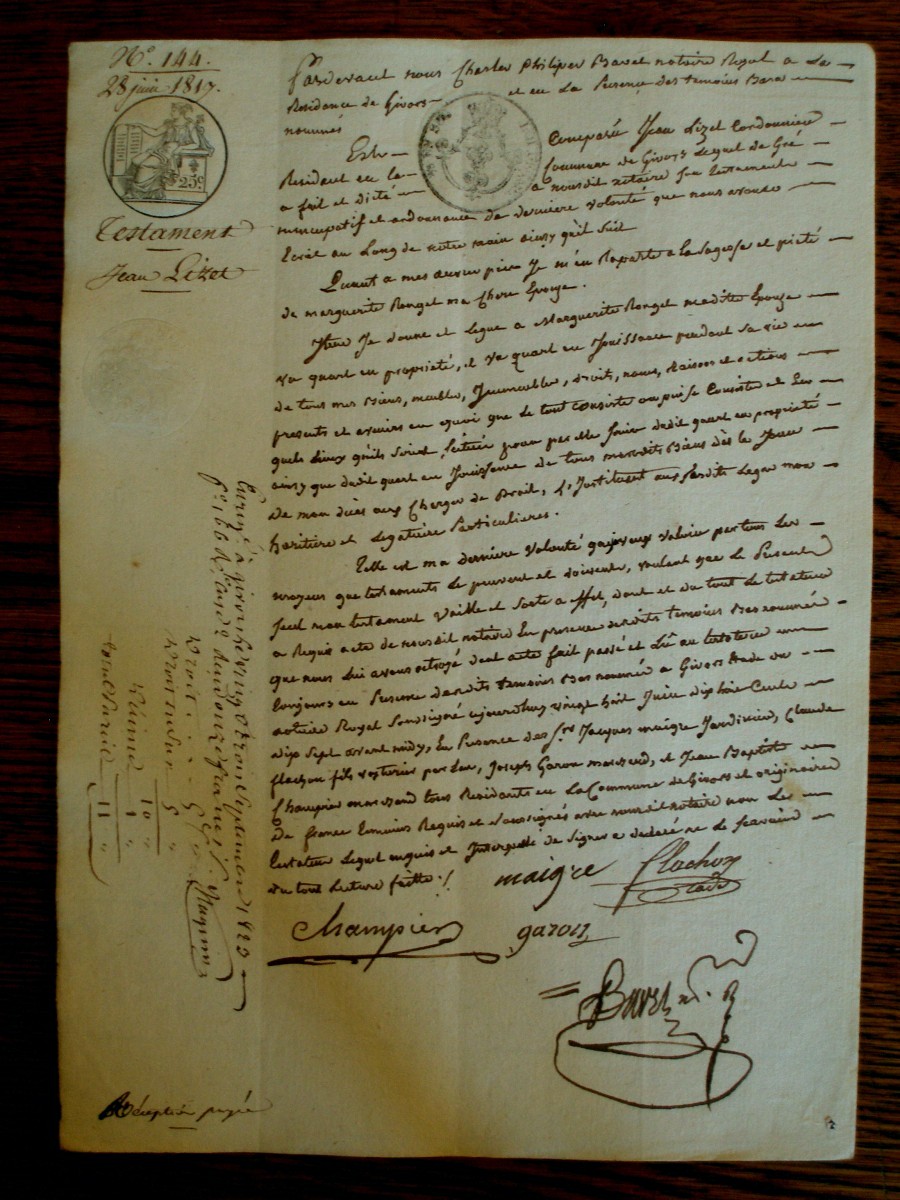 N.° 144.
28 juin 1817.
25 c
Testament
Jean Lizet
Pardevant nous Charles Philipes Bavet notaire Royal a La
Residance de Givors et en La Presence des temoins Bas
nommés
Est Comparu Jean Lizet Cordonnier
Residant en la Commune de Givors Lequel de Gré
a fait et dicté a nousdit notaire Son testament
nuncupatif et ordonnance de derniere volonté que nous avons
Ecrit au Long de notre main ainsy qu'il Suit
Quant a mes je m'en Raporte a la Sagesse et pieté
de marguerite Rongel ma Chere Epouze.
Item Je donne et Legue a Marguerite Rongel maditte Epouze
un quart en propriété, et un quart en Jouissance pendant Sa vie
de tous mes Biens, meubles, Immeubles, droits, noms, Raisons et actions
presents et avenirs en quoi que le tout Consiste ou puisse Consister et Les
quels Lieux qu'ils Soient Situés pour par elle Jouir dudit quart en propriété
ainsy que dudit quart en Jouissance de tous mesdits Biens dès le Jour
De mon décès aux Charges de Droit, L'Instituant aux Susdits Legas mon
heritiere et Legataire Particulieres.
Telle est ma derniere volonté que je veux valoir par tous Les
moyens que testaments Le peuvent et doivent, voulant que Le Present
Seul mon testament vaille et Sorte a Effet, dont et du tout Le testateur
a Requis acte de nousdit notaire En presence desdits temoins Bas nommés
que nous Lui avons octroyé dont acte fait passé et Lû au testateur
toujours en Presence desdits temoins Bas nommés a Givors Etude du
notaire Royal Soussigné aujourdhuy vingt huit Juin dix huit Cents
dix Sept avant midy, En Presence des S.rs Jacques maigre Jardinier, Claude
flachon fils voiturier par Eau, Joseph Garon marchand, et Jean Baptiste
Champier marchand tous Residants en La Commune de Givors et originaires
De france temoins Requis et Soussignés avec nousdit notaire non Le
testateur Lequel enquis et Interpellé de Signer a declaré ne Le Savoir
du tout Lecture faitte ./.
maigre flachon
Champier garon
Bavet
Enreg. à Givors le vingt trois 1823
f.° 166
Droit 5
10
1
11
Réception payée